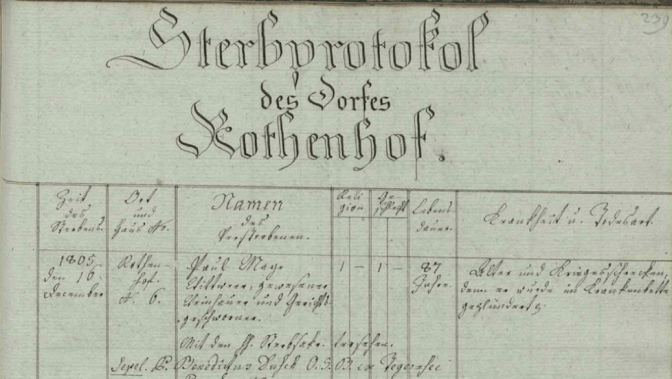 239
Sterbprotokol
des Dorfes
Rothenhof.
Zeit des Sterbens.
Ort und Haus N.
Namen des Verstorbenen.
Religion
Geschlecht
Lebensdauer.
Krankheit u. Todesart.
1805. den 16. December
Rothenhof. N. 6.
Paul Mayr
Wittwer, gewesener
Weinhauer und Gerichts-
geschworner.
1 – 1 –
87 Jahre.
Alter und Kriegsschrecken,
denn er wurde im Krankenbette
geplündert.
Mit den H. Sterbsakr. versehen.
Sepel. P. Benedictus